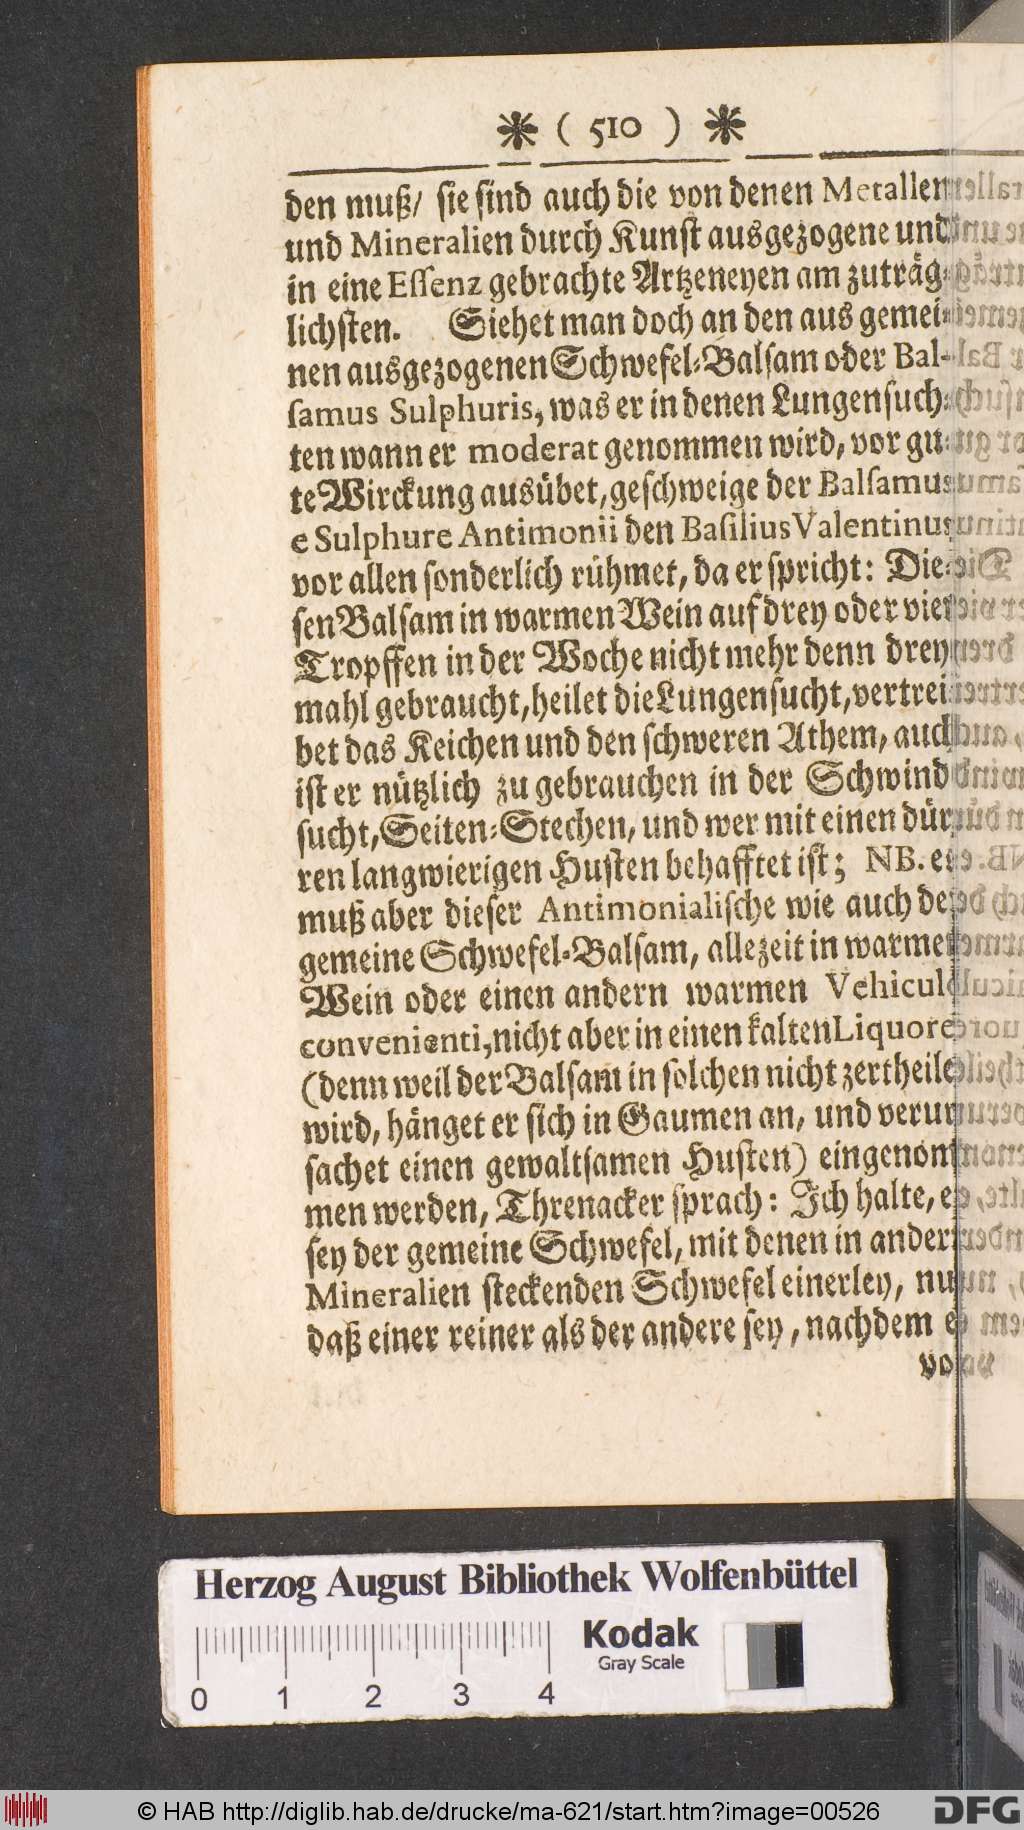 * ( 510 ) *
den muß/ sie sind auch die von denen Metallen
und Mineralien durch Kunst ausgezogene und
in eine Essenz gebrachte Artzeneyen am zuträg-
lichsten. Siehet man doch an den aus gemei-
nen ausgezogenen Schwefel-Balsam oder Bal-
samus Sulphuris, was er in denen Lungensuch-
ten wann er moderat genommen wird, vor gu-
te Wirckung ausübet, geschweige der Balsamus
e Sulphure Antimonii den Basilius Valentinus
vor allen sonderlich rühmet, da er spricht: Die-
sen Balsam in warmen Wein auf drey oder vier
Tropffen in der Woche nicht mehr denn drey
mahl gebraucht, heilet die Lungensucht, vertrei-
bet das Keichen und den schweren Athem, auch
ist er nützlich zu gebrauchen in der Schwind
sucht, Seiten-Stechen, und wer mit einen dür-
ren langwierigen Husten behafftet ist; NB. es
muß aber dieser Antimonialische wie auch der
gemeine Schwefel-Balsam, allezeit in warmen
Wein oder einen andern warmen Vehiculo
convenienti, nicht aber in einen kalten Liquore
(denn weil der Balsam in solchen nicht zertheilet
wird, hänget er sich in Gaumen an, und verur-
sachet einen gewaltsamen Husten) eingenom-
men werden, Threnacker sprach: Ich halte, es
sey der gemeine Schwefel, mit denen in andern
Mineralien steckenden Schwefel einerley, nur
daß einer reiner als der andere sey, nachdem er
von
Herzog August Bibliothek Wolfenbüttel
Kodak
Gray Scale
0 1 2 3 4
© HAB http://diglib.hab.de/drucke/ma-621/start.htm?image=00526
DFG